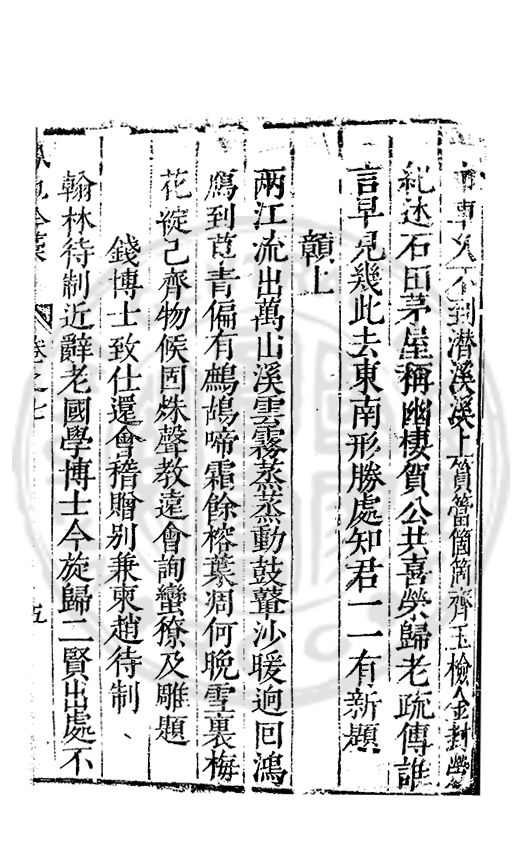 到濟溪溪上篔簹箇箇齊玉檢金封幾
紀述石田茅屋稱幽棲賀公共喜榮歸老疏傳誰
言早見幾此去東南形勝處知君一一有新題
贛上
兩江流出萬山溪雲霧蒸蒸動鼓鼙沙暖迥回鴻
鴈到草青偏有鷓鴣啼霜餘榕葉凋何晚雪裏梅
花綻已齊物候固殊聲教遠會詢蠻獠及雕題
錢博士致仕還會稽贈别兼柬趙待制
翰林待制近辭老國學博士今旋歸二賢出處不
卷之七
五